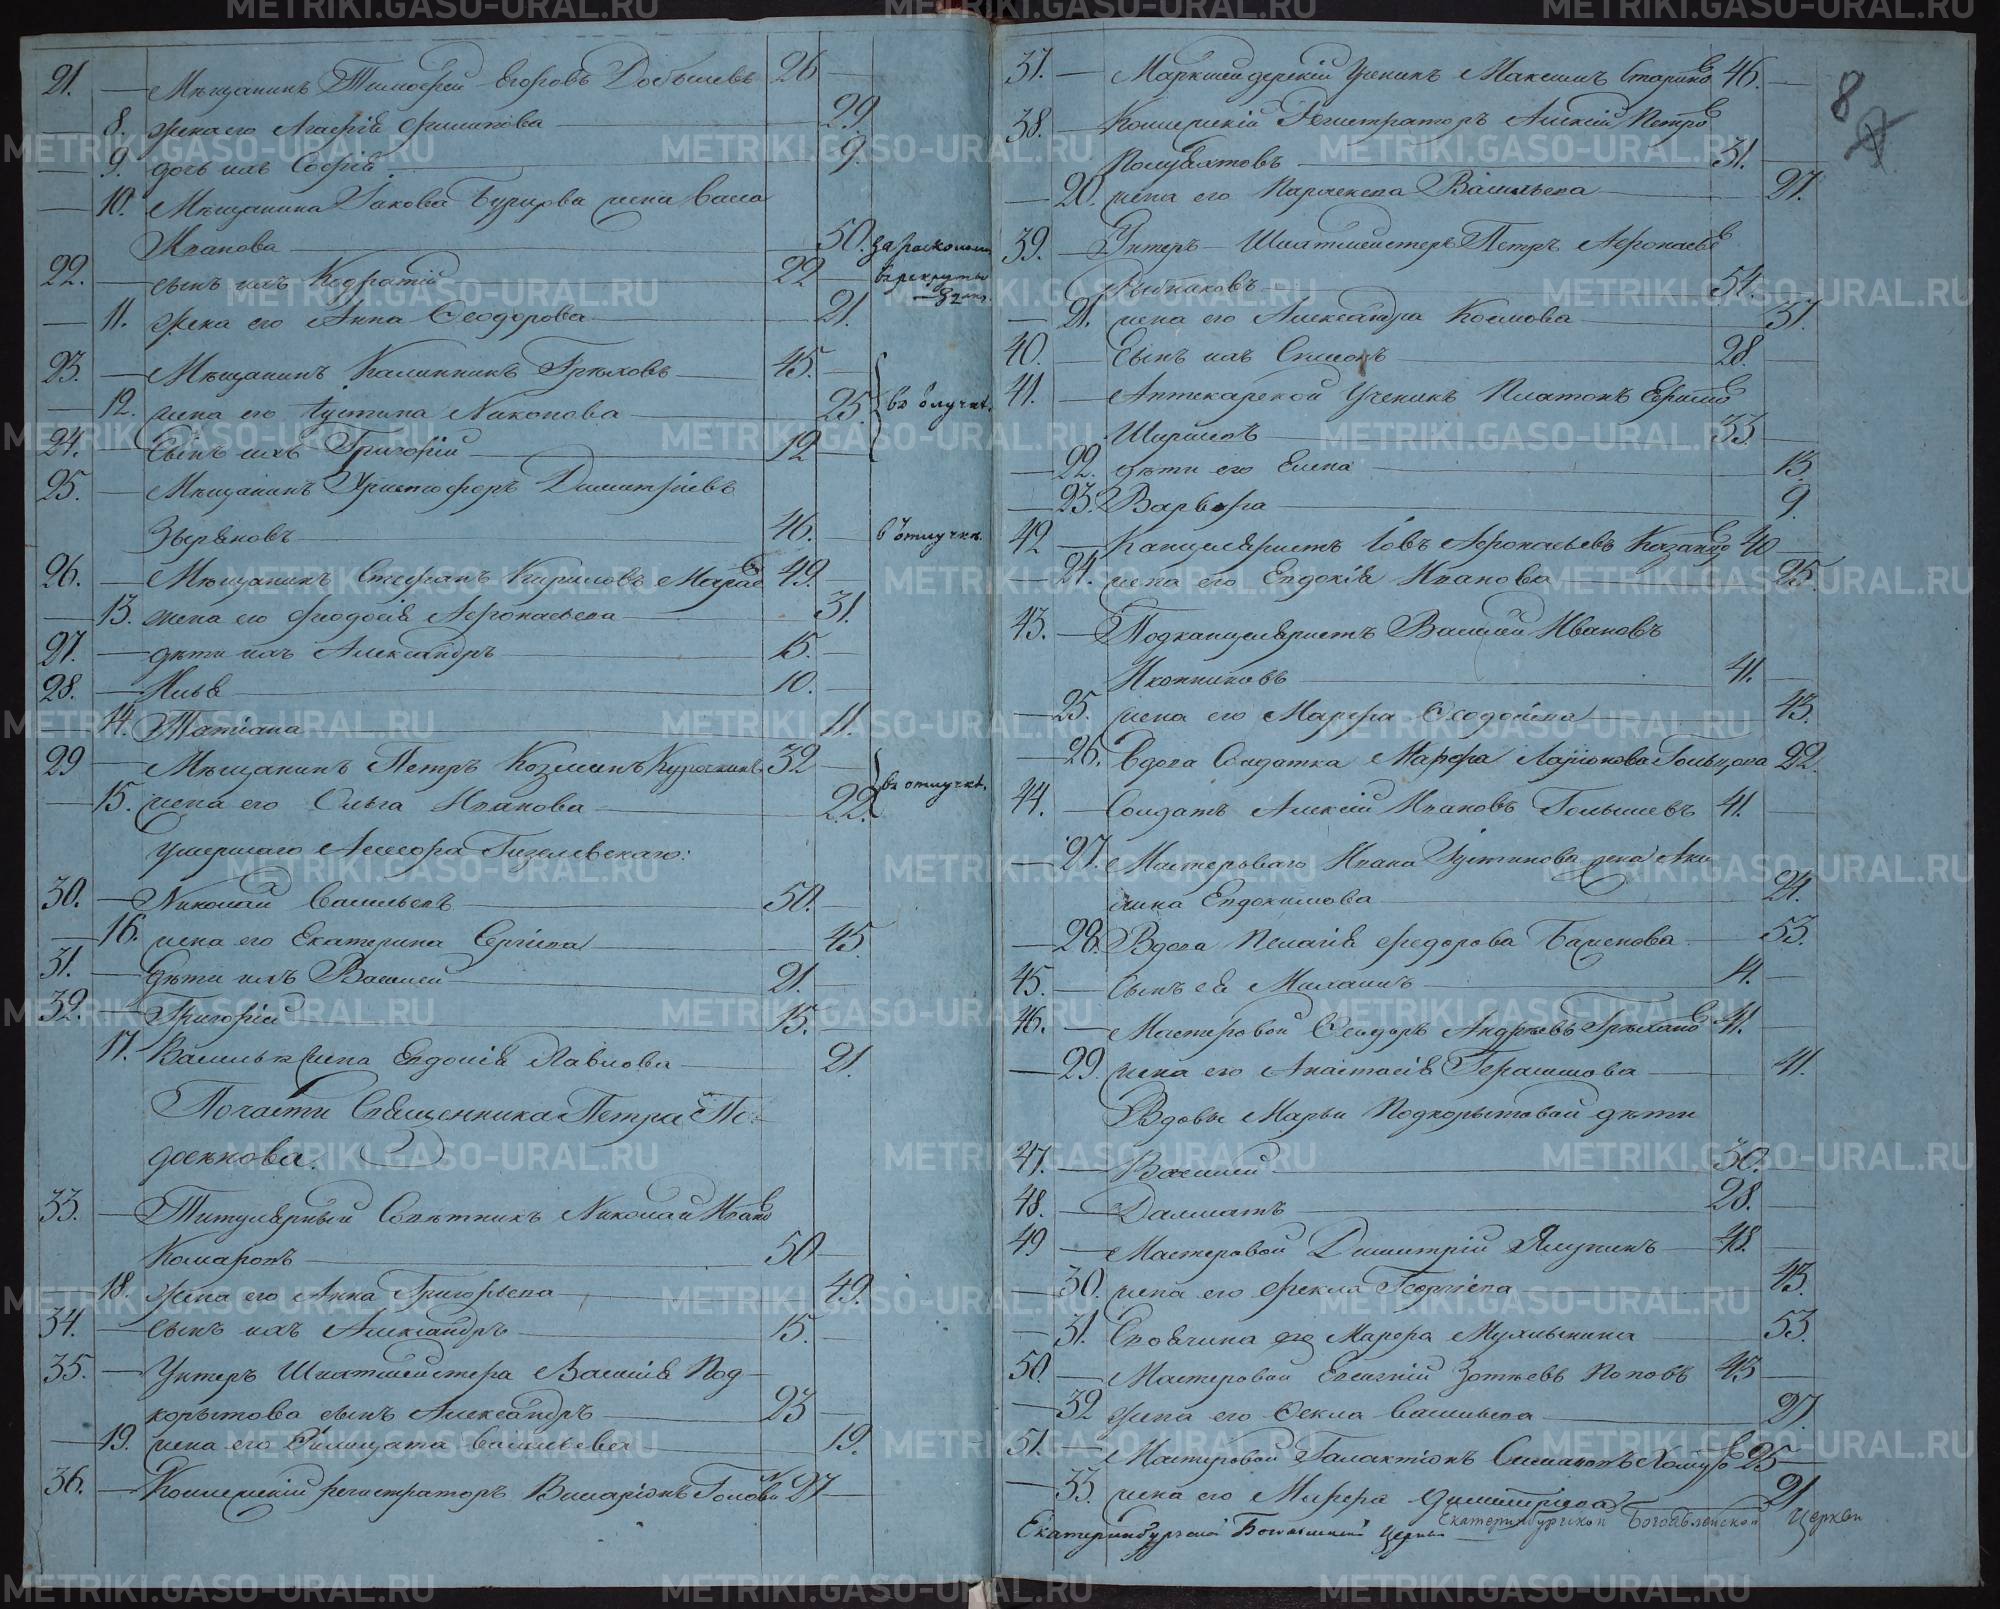 21. — Мѣщанинъ Тимофей Егоровъ Добышевъ 26 —
— 8. жена его Агафія Филипова — 29
— 9. дочь ихъ Софія — 9.
— 10. Мѣщанина Іакова жена Васса
Иванова — 50. за расколомъ
22. — сынъ ихъ Кодратій 22 — въ рекруты
— 11. жена его Анна Ѳеодорова — 21.
23. — Мѣщанинъ Калинникъ Грѣховъ — 45. —
— 12. жена его Іустина Никонова — 25. въ отлучкѣ.
24. — Сынъ ихъ Григорій — 12 —
25. — Мѣщанинъ Христофоръ Димитріевъ
Зыряновъ — 46. — въ отлучкѣ.
26. — Мѣщанинъ Стефанъ Кириловъ 49. —
— 13. жена его Феодосія Афонасьева — 31.
27. — дѣти ихъ Александръ — 15. —
28. — Илья — 10. —
14. Татіана — 11.
29 — Мѣщанинъ Петръ Козминъ Курочкинъ 32 —
— 15. жена его Ольга Иванова — 22. въ отлучкѣ.
умершаго Ассесора Гизелевскаго:
30. — Николай Васильевъ — 50. —
— 16. жена его Екатерина Сергіева — 45.
31. — Дѣти ихъ Василій — 21. —
32. — Григорій — 15. —
17. Василья жена Евдокія Павлова — 21.
По части Священника Петра
33. — Титулярный Совѣтникъ Николай Ивановъ
Комаровъ — 50 —
18. жена его Анна Григорьева — 49.
34. — сынъ ихъ Александръ — 15. —
35. — Унтеръ Шихтмейстера Василія Под-
корытова сынъ Александръ — 23 —
— 19. жена его Васильева — 19.
36. — Коллежскій регистраторъ Иларіонъ 27 —
37. — Маркшейдерскій Ученикъ Максимъ Стариковъ 46. —
38. — Коллежскій Регистраторъ Алексій Петровъ
Полуяхтовъ — 31. —
— 20. жена его Параскева Васильева — 27.
39. — Унтеръ-Шихтмейстеръ Петръ Афонасьевъ
Рыбниковъ — 54. —
— 21. жена его Александра Космова — 37.
40. — Сынъ ихъ Симеонъ — 28. —
41. — Аптекарской Ученикъ Платонъ
Ширяевъ — 33 —
— 22. дѣти его Елена — 13.
— 23. Варвара — 9.
42 — Канцеляристъ Іовъ Афонасьевъ Казанцовъ 40 —
— 24. жена его Евдокія Иванова — 25.
43. — Подканцеляристъ Василій Ивановъ
Иконниковъ — 41. —
— 25. жена его Марфа Ѳеодосіева — 43.
— 26. Вдова Солдатка Марфа Ларіонова 22.
44. — Солдатъ Алексій Ивановъ Голышевъ 41. —
— 27. Мастероваго Ивана Іустинова жена Аки-
лина Евдокимова — 24.
— 28. Вдова Пелагія Федорова — 53.
45. — Сынъ ея —
46. — Мастеровой Ѳеодоръ Андреевъ 41. —
— 29. жена его Анастасія Герасимова — 41.
Вдовы Марьи Подкорытовой дѣти
47. — Василій — 30. —
48. — Далматъ — 28. —
49 — Мастеровой Димитрій Ялунинъ — 48. —
— 30. жена его Фекла Георгіева — 43.
— 31. Марфа — 53.
50. — Мастеровой Евгеній Зотѣевъ Поповъ 43 —
— 32 жена его Ѳекла Васильева — 27.
51. — Мастеровой Галактіонъ Симеоновъ 25 —
— 33. жена его Марфа Димитріева — 21
Екатеринбургской Богоявленской Церкви
Екатеринбургской Богоявленской церкви
8
METRIKI.GASO-URAL.RU